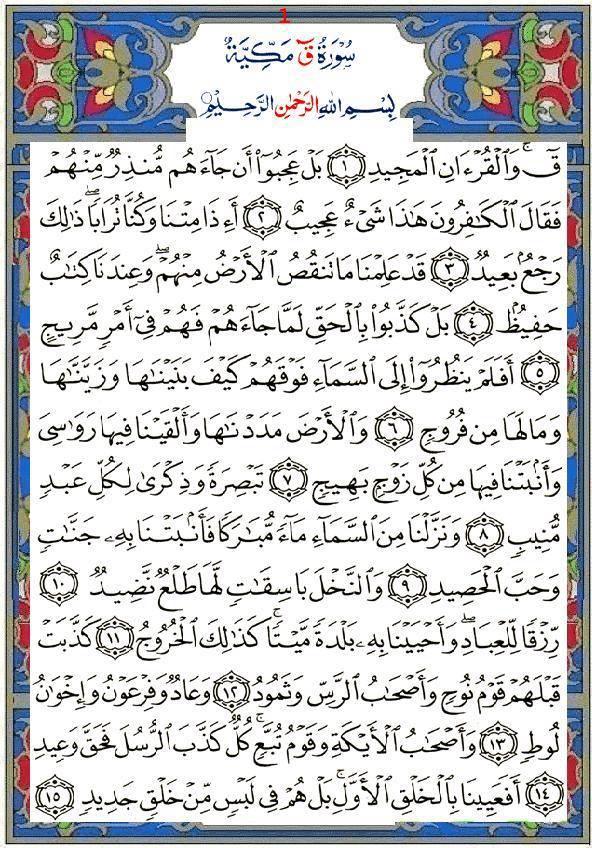 1
سُورَةُ قٓ مَكِّيَّةٌ
بِسْمِ اللهِ الرَّحْمٰنِ الرَّحِيْمِ
قٓ ۚ وَٱلْقُرْءَانِ ٱلْمَجِيدِ ١ بَلْ عَجِبُوٓا۟ أَن جَآءَهُم مُّنذِرٌ مِّنْهُمْ
فَقَالَ ٱلْكَٰفِرُونَ هَٰذَا شَىْءٌ عَجِيبٌ ٢ أَءِذَا مِتْنَا وَكُنَّا تُرَابًا ۖ ذَٰلِكَ
رَجْعٌۢ بَعِيدٌ ٣ قَدْ عَلِمْنَا مَا تَنقُصُ ٱلْأَرْضُ مِنْهُمْ ۖ وَعِندَنَا كِتَٰبٌ
حَفِيظٌۢ ٤ بَلْ كَذَّبُوا۟ بِٱلْحَقِّ لَمَّا جَآءَهُمْ فَهُمْ فِىٓ أَمْرٍ مَّرِيجٍ
٥ أَفَلَمْ يَنظُرُوٓا۟ إِلَى ٱلسَّمَآءِ فَوْقَهُمْ كَيْفَ بَنَيْنَٰهَا وَزَيَّنَّٰهَا
وَمَا لَهَا مِن فُرُوجٍ ٦ وَٱلْأَرْضَ مَدَدْنَٰهَا وَأَلْقَيْنَا فِيهَا رَوَٰسِىَ
وَأَنۢبَتْنَا فِيهَا مِن كُلِّ زَوْجٍۭ بَهِيجٍ ٧ تَبْصِرَةً وَذِكْرَىٰ لِكُلِّ عَبْدٍ
مُّنِيبٍ ٨ وَنَزَّلْنَا مِنَ ٱلسَّمَآءِ مَآءً مُّبَٰرَكًا فَأَنۢبَتْنَا بِهِۦ جَنَّٰتٍ
وَحَبَّ ٱلْحَصِيدِ ٩ وَٱلنَّخْلَ بَاسِقَٰتٍ لَّهَا طَلْعٌ نَّضِيدٌ ١٠
رِّزْقًا لِّلْعِبَادِ ۖ وَأَحْيَيْنَا بِهِۦ بَلْدَةً مَّيْتًا ۚ كَذَٰلِكَ ٱلْخُرُوجُ ١١ كَذَّبَتْ
قَبْلَهُمْ قَوْمُ نُوحٍ وَأَصْحَٰبُ ٱلرَّسِّ وَثَمُودُ ١٢ وَعَادٌ وَفِرْعَوْنُ وَإِخْوَٰنُ
لُوطٍ ١٣ وَأَصْحَٰبُ ٱلْأَيْكَةِ وَقَوْمُ تُبَّعٍ ۚ كُلٌّ كَذَّبَ ٱلرُّسُلَ فَحَقَّ وَعِيدِ
١٤ أَفَعَيِينَا بِٱلْخَلْقِ ٱلْأَوَّلِ ۚ بَلْ هُمْ فِى لَبْسٍ مِّنْ خَلْقٍ جَدِيدٍ ١٥